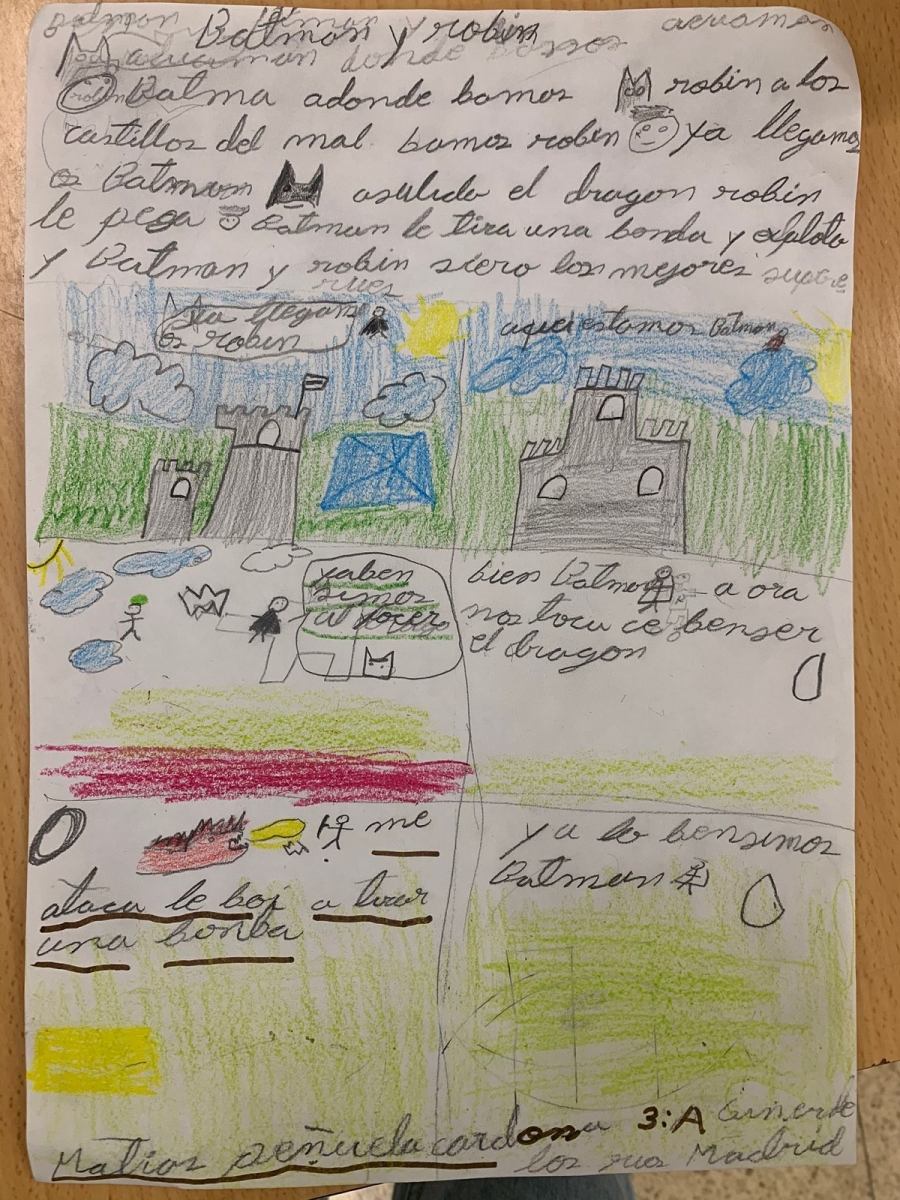 Batman y robin
Batma adonde bamos robin a los
castillos del mal bamos robin ya llegamos
os Batman a salido el dragon robin
le pega Batman le tira una bonda y esploto
y Batman y robin siero los mejores supre
rues
ya llegam
os robin
aqui estamos Batman
ya ben
simos
al
bien Batman a ora
nos toca ce benser
el dragon
me
ataca le boi a tirar
una bonba
ya lo bensimos
Batman
3:A
Matias señuela cardona
los Madrid